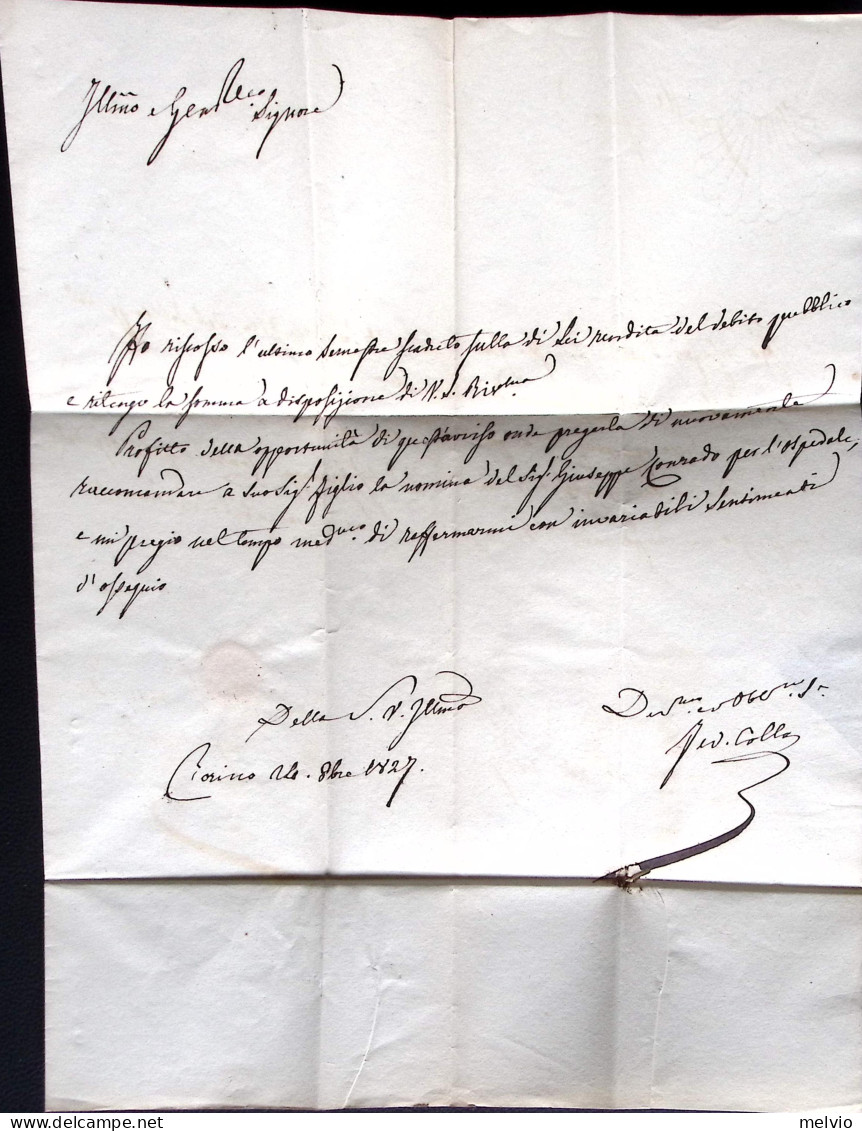 Illmo e Gen Signore
Ho riscosso l'ultimo semestre scaduto sulla di Lei rendita del debito pubblico
e ritengo la somma a disposizione di V. S.
Profitto della opportunità di quest'avviso onde pregarla di nuovamente
raccomandare a suo Sigr figlio la nomina del Sigr Giuseppe Corrado per l'ospedale,
e mi pregio nel tempo di raffermarmi con invariabili sentimenti
d'ossequio
Della S. V. Illma
Torino 24. 8bre 1827.
Colla
melvio